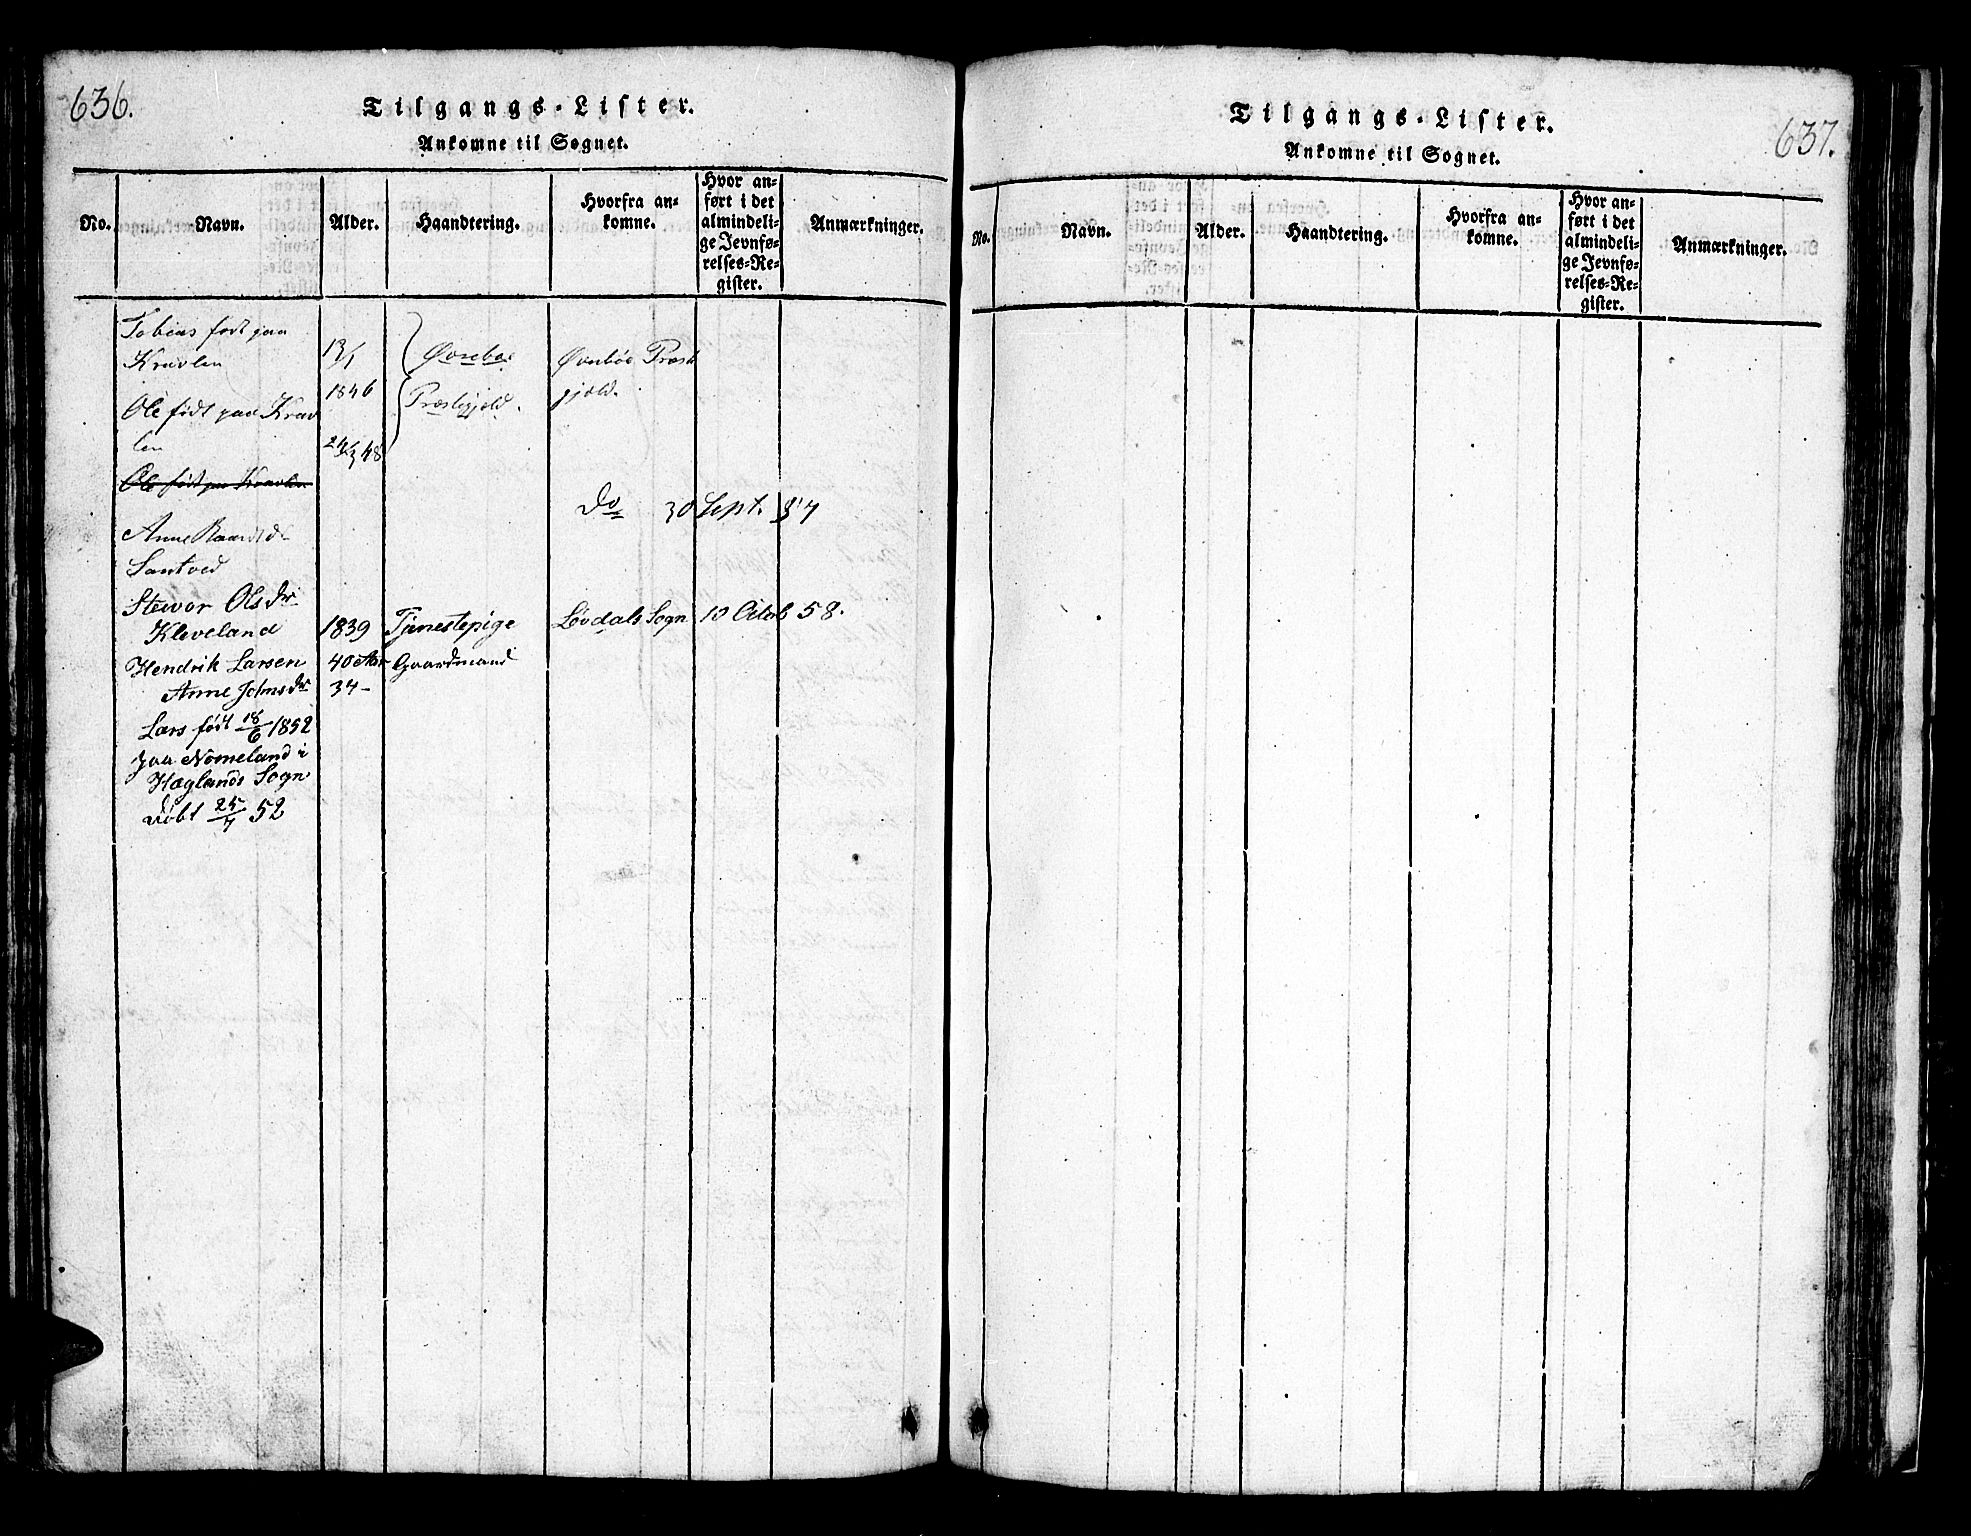 636.
Tilgangs-Lister.
Ankomne til Sognet.
No.
Navn.
Alder.
Haandtering.
Hvorfra an-
komne.
Hvor an-
ført i det
almindeli-
ge Jevnfø-
relses-Re-
gister.
Anmærkninger.
Tobias født paa
Kravlen
13/1
1846
Øvrebøe
Øvrebøe Præste
gjeld.
Præstegjeld.
Ole født paa Krav
len
24/3 48
Ole født paa Kravlen
Do 30 Sept. 57
Anne
Stevor Olsdr
Kleveland
1839
Tjenestepige
Løvdals Sogn
10 Octob 58.
Hendrik Larsen
40 Aar
Gaardmand
Anne Johnsdr
34-
Lars født 18/6 1852
paa Nomeland i
Hæglands Sogn
døbt 25/7 52
637.
Tilgangs-Lister.
Ankomne til Sognet.
No.
Navn.
Alder.
Haandtering.
Hvorfra an-
komne.
Hvor an-
ført i det
almindeli-
ge Jevnfø-
relses-Re-
gister.
Anmærkninger.